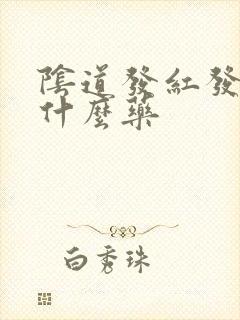 陰道發紅發
什麼藥
白秀珠